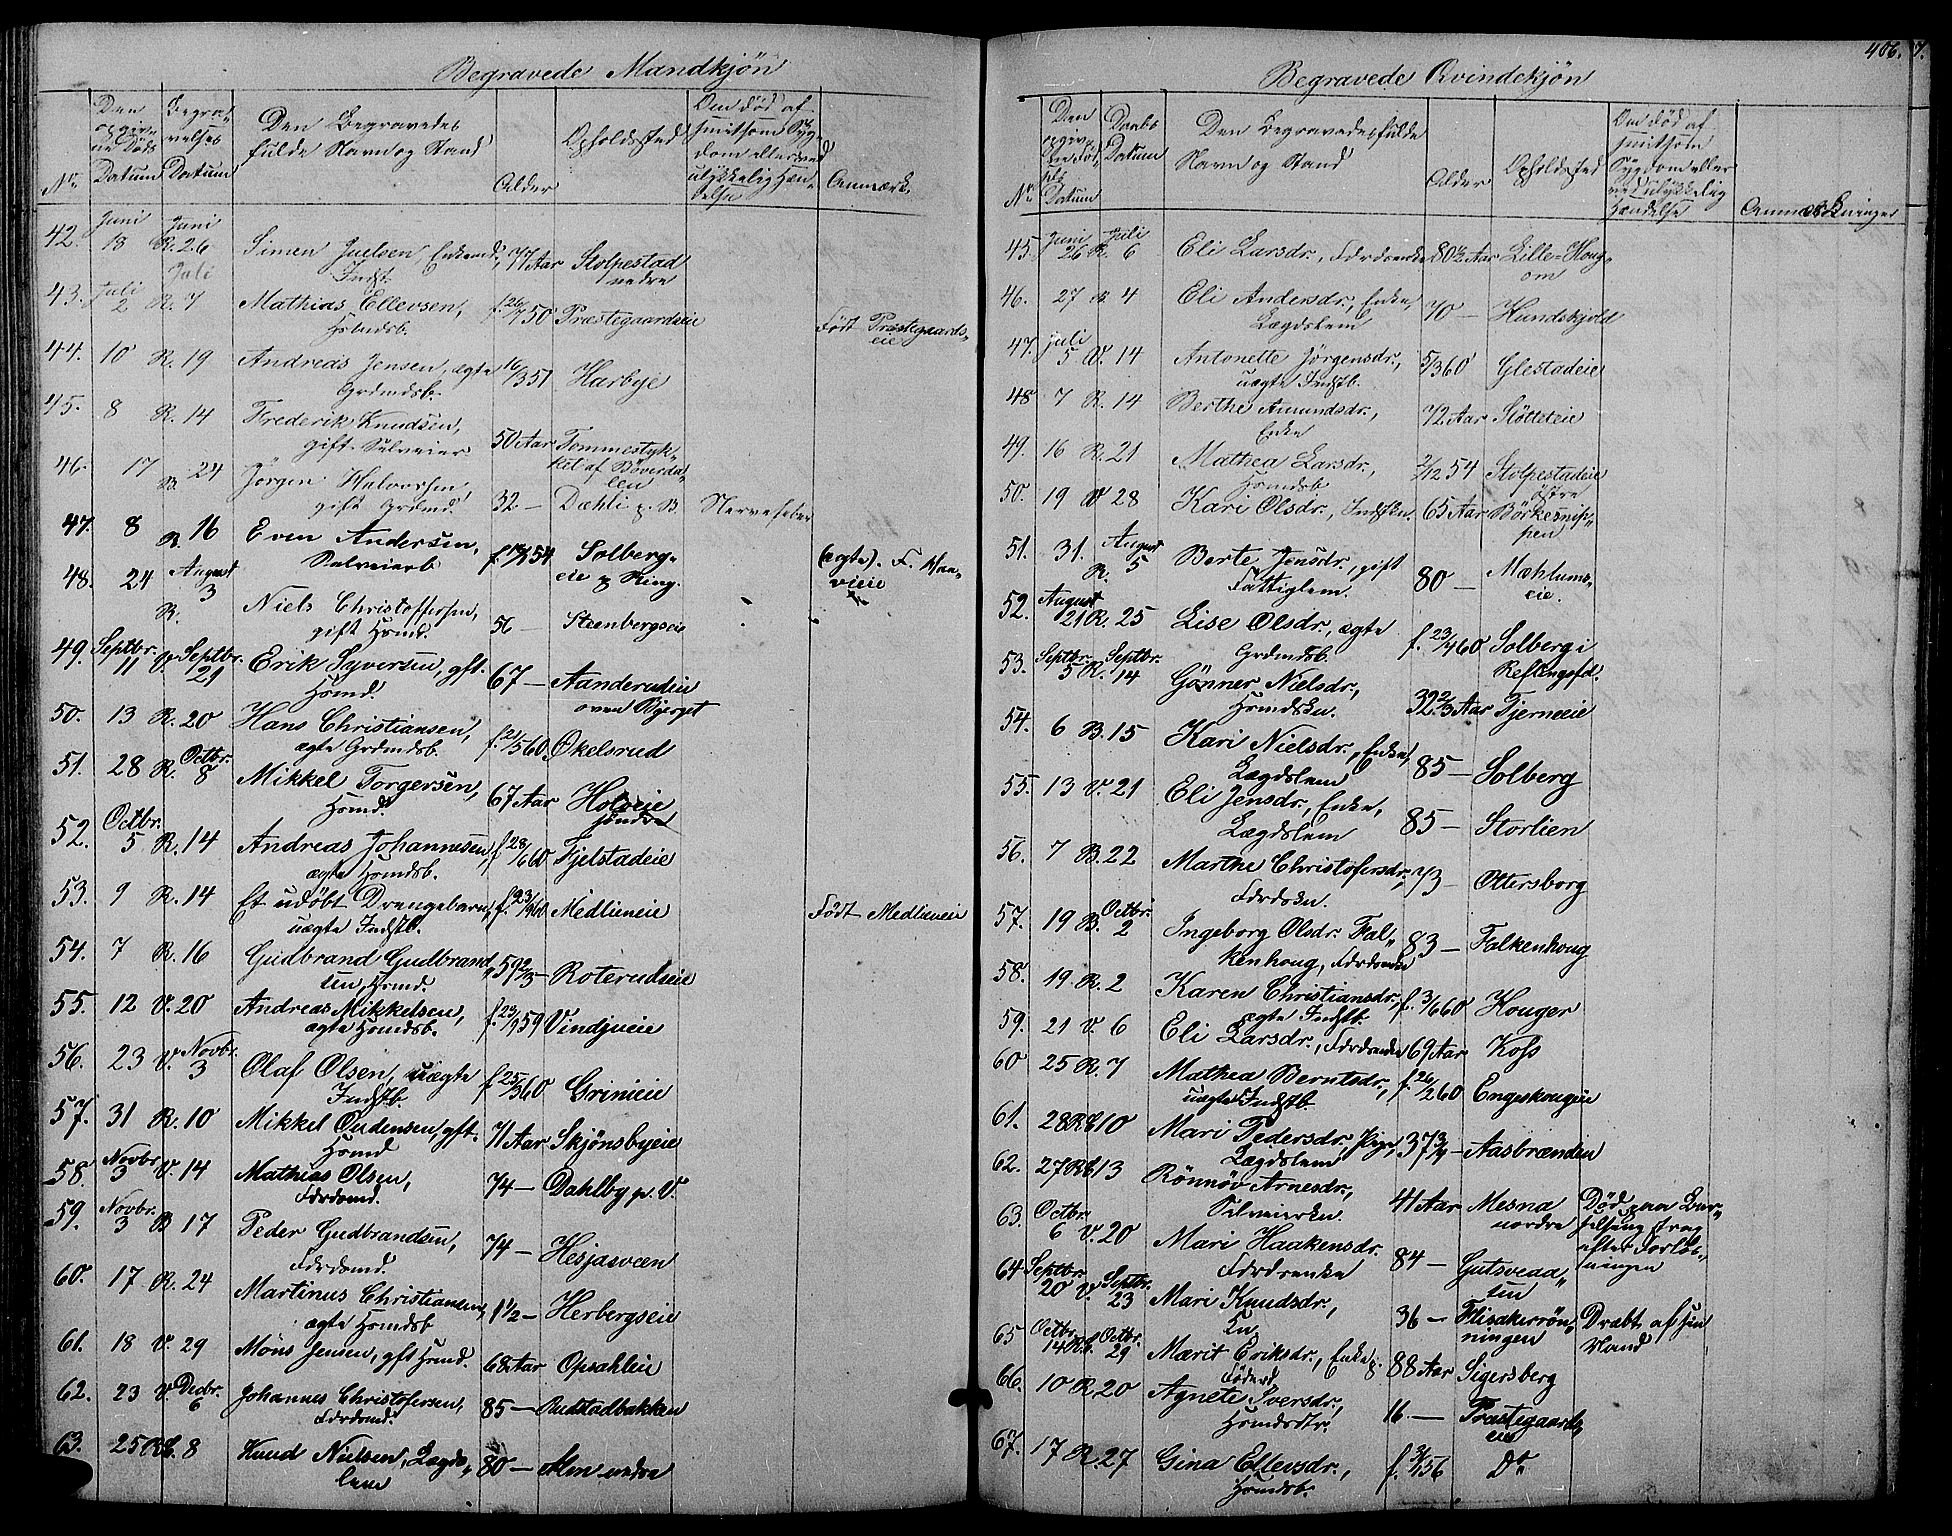 Begravede Mandkjøn
No.
Den opgivne Døds Datum
Begravelses Datum
Den Begravedes fulde Navn og Stand
Alder
Opholdsted
Om død af smitsom Sygdom eller ved ulykkelig Hændelse
Anmærk.
42. Juni 18 R. Juni 26 Simen Juelsen, Enkemd., Indst. 77 Aar Stolpestad nedre
43. Juli 2 R. Juli 7 Mathias Ellevsen, Hsmdsb. f. 26/7 50 Præstegaardseie Født Præstegaardseie
44. 10 R. 19 Andreas Jensen, ægte Grdmdsb. 16/3 51 Harbye
45. 8 R. 14 Frederik Knudsen, gift Selveier 50 Aar Temmestykket af Bøverdalen
46. 17 B. 24 Jørgen Halvorsen, gift Grdmd. 32 — Dæhli p. B. Nervefeber
47. 8 B. 16 Even Andersen, Selveierb. Solbergeie p Ring. (ægte). F.
48. 24 R. August 3 Niels Christoffersen, gift Hsmd. 56 — Steenbergseie
49. Septbr. 11 V. Septbr. 29 Erik Syversen, gft. Hsmd. 67 — Aanderudeie oven Bjerget
50. 13 R. 20 Hans Christiansen, ægte Grdmdsb. f. 21/5 60 Økelsrud
51. 28 R. Octbr. 8 Mikkel Torgersen, Hsmd. 67 Aar Holveie søndre
52. Octbr. 5 R. 14 Andreas Johannesen, ægte Hsmdsb. f. 28/6 60 Fjelstadeie
53. 9 R. 14 Et udøbt Drengebarn, uægte Indstb. f. 23/9 60 Medlieneie Født Medlieneie
54. 7 R. 16 Gudbrand Gudbrandsen, Hsmd. 59 2/3 — Roterudseie
55. 12 V. 20 Andreas Mikkelsen, ægte Hsmdsb. f. 23/9 59 Vindjueie
56. 23 V. Novbr. 3 Olaf Olsen, uægte Indstb. f. 25/3 60 Grinieie
57. 31 R. 10 Mikkel Oudensen, gft. Hsmd 71 Aar Skjønsbyeie
58. Novbr. 3 V. 14 Mathias Olsen, Fdrdsmd. 74 — Dahlby p. V.
59. Novbr. 3 B 17 Peder Gudbrandsen, Fdrdsmd. 74 — Hesjasveen
60. 17 R. 24 Martinus Christiansen, ægte Hsmdsb 1 1/2 — Herbergseie
61. 18 V. 29 Møns Jensen, gft Hsmd. 68 Aar Opsahleie
62. 23 V. Decbr. 6 Johannes Christofersen, Fdrdsmd. 85 — Rudstadbakken
63. 25 8 Knud Nielsen, Lægdslem 80 — Alm nedre
Begravede Qvindekjøn
406.
No.
Den opgivne Døds Datum
Daabs Datum
Den Begravedes fulde Navn og Stand
Alder
Opholdsted
Om død af smitsom Sygdom eller ved ulykkelig Hændelse
Anmærkninger
45. Juni 26 R. Juli 6 Eli Larsdr., Fdrdsenke 80 1/2 Aar Lille-Hougom
46. 27 R 4 Eli Andersdr., Enke, Lægdslem 70 — Hundskjold
47. Juli 5 V. 14 Antonette Jörgensdr., uægte Indstb. 5/3 60 Glestadeie
48 7 R. 14 Berthe Amundsdr., Enke 72 Aar Støtteeie
49. 16 R. 21 Mathea Larsdr., Hsmdsb 2/12 54 Stolpestadeie østre
50. 19 V 28 Kari Olsdr., Indstkn. 65 Aar Börkesnippen
51. 31. R. August 5 Berte Jensdr., gift Fattiglem. 80 — Mæhlumseie.
52. August 21 R. 25 Lise Olsdr., ægte Grdmdsb. f. 23/4 60 Solberg i Reflengsfd.
53. Septbr. 5 R. Septbr. 14 Gønner Nielsdr., Hsmdskn. 32 2/3 Aar Tjerneeie
54. 6 B. 15 Kari Nielsdr., Enke, Lægdslem 85 — Solberg
55. 13 V. 21 Eli Jensdr., Enke, Lægdslem 85 — Storlien
56. 7 B. 22 Marthe Christofersdr., Fdrdskn. 73 — Ottersborg
57. 19 B. Octbr. 2 Ingeborg Olsdr. Falkenhoug, Fdrdsenke 83 — Falkenhoug
58. 19 R. 2 Karen Christiansdr., ægte Indstb. f. 3/6 60 Houger
59. 21 V. 6 Eli Larsdr., Fdrdsenke 69 Aar Koss
60 25 R. 7 Mathea Berntsdr., uægte Indstb. f. 26/2 60 Engeskougeie
61. 28 10 Mari Pedersdr., Pige, Lægdslem 37 3/4 — Aasbrænden
62. 27 13 Rönnöv Arnesdr., Selveierkn. 41 Aar Mesna nordre Död paa Barselseng strax efter Forløsningen
63. Octbr. 6 V. 20 Mari Haakensdr. Fdrdsenke 84 — Gutsveaasen
64 Septbr. 20 V. Septbr. 23 Mari Knudsdr., Kn. 36 — Flisakerrønningen Dræbt af sin Mand
65 Octbr. 14 Octbr. 29 Marit Eriksdr., Enke p. Föderd 88 Aar Sigersberg
66. 10 R. 20 Agnete Iversdr., Hsmdsdtr. 16. — Præstegaardseie
67. 17 R. 27 Gina Ellevsdr., Hsmdsb. Do